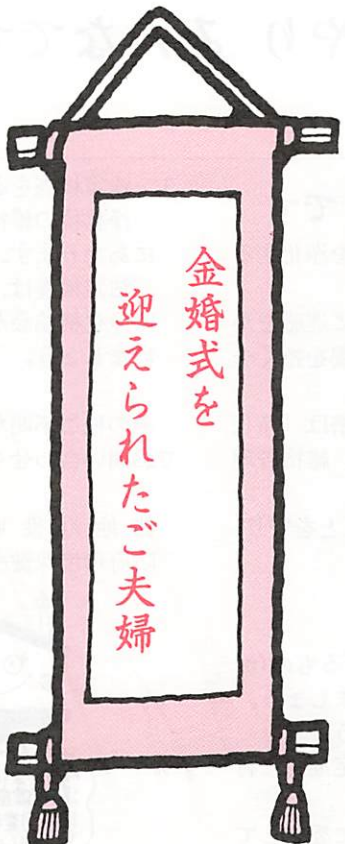 金婚式を
迎えられたご夫婦